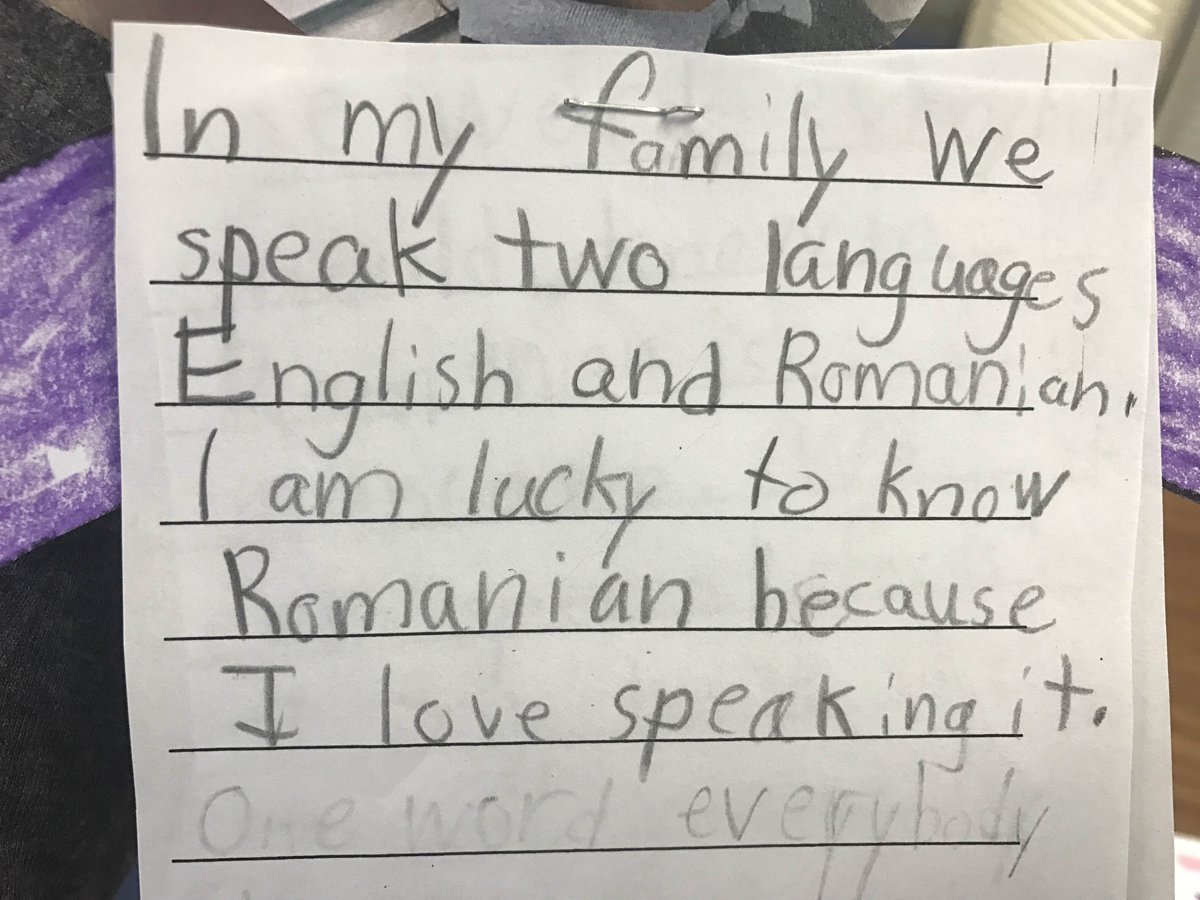 In my family we
speak two languages
English and Romanian.
I am lucky to know
Romanian because
I love speaking it.
One word everybody